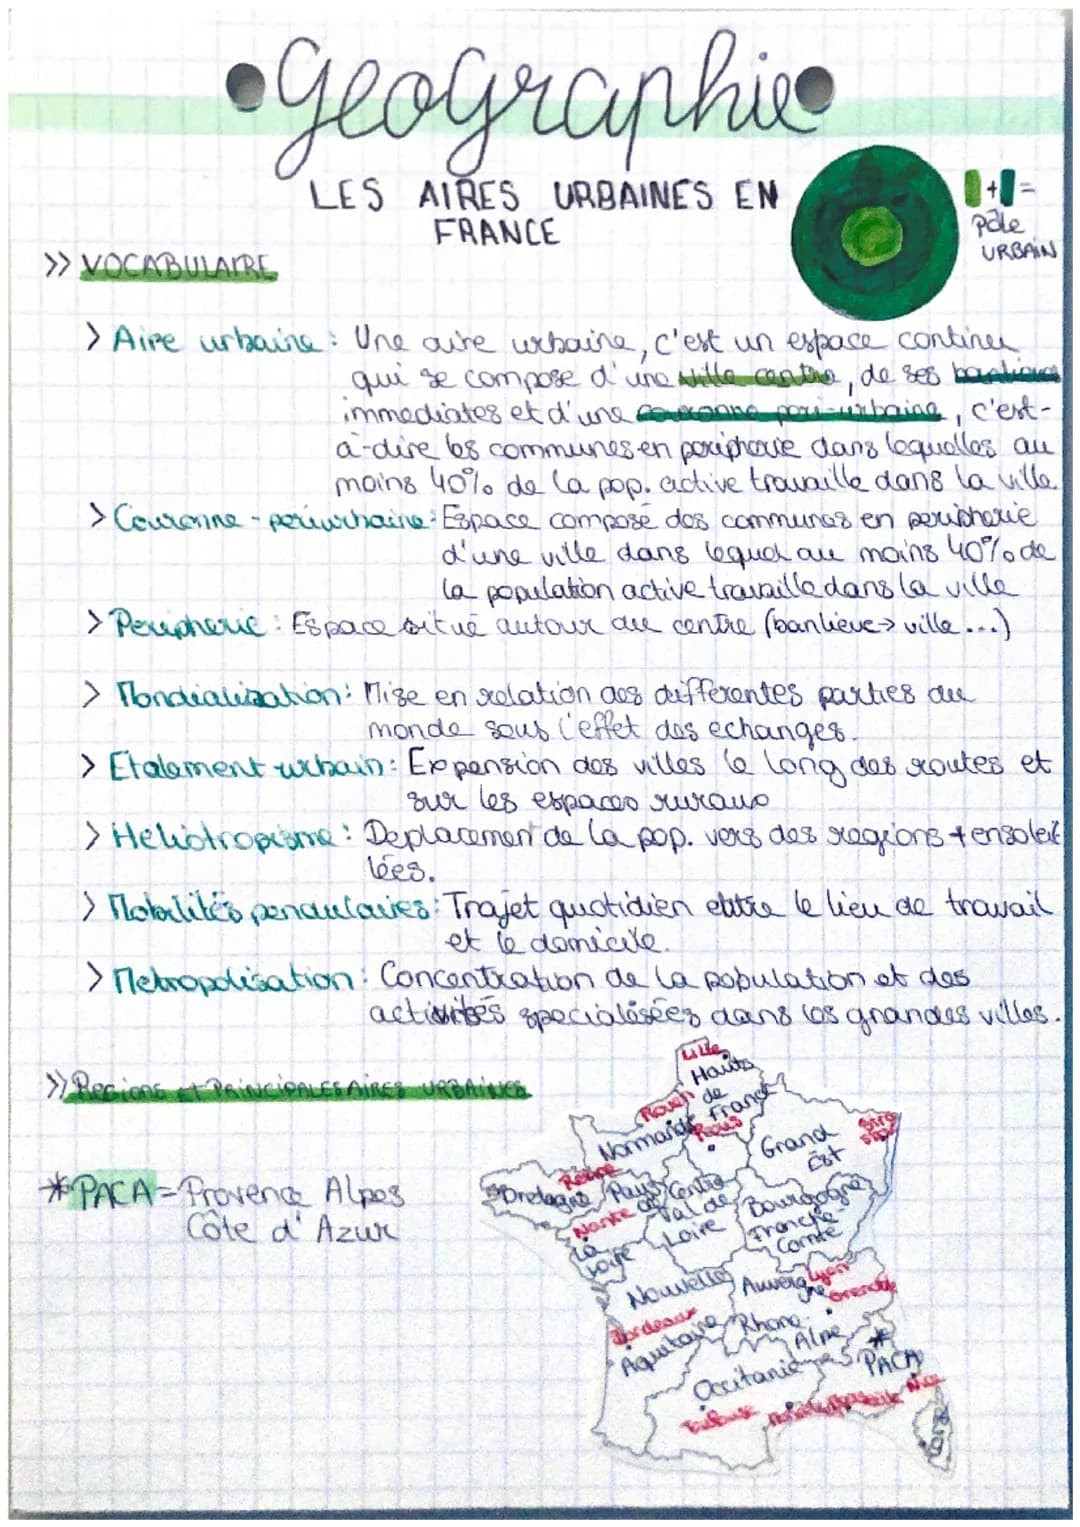 Géographie
LES AIRES URBAINES EN
FRANCE
+ =
Pôle
URBAIN
>> VOCABULAIRE
> Aire urbaine : Une aire urbaine, c'est un espace continu
qui se compose d'une ville centre, de ses banlieues
immediates et d'une couronne peri-urbaine, c'est-
à-dire les communes en peripherie dans lequelles au
moins 40% de la pop. active travaille dans la ville
> Couronne - periurbaine : Espace composé des communes en peripherie
d'une ville dans lequel au moins 40% de
la population active travaille dans la ville
> Peripherie : Espace situé autour du centre (banlieue → ville ...)
> Mondialisation : Mise en relation des differentes parties du
monde sous l'effet des echanges.
> Etalement urbain : Expension des villes le long des routes et
sur les espaces ruraux
> Heliotropisme : Deplacement de la pop. vers des regions + ensoleil
lées.
> Mobilités pendulaires : Trajet quotidien entre le lieu de travail
et le domicile.
> Metropolisation : Concentration de la population et des
activités specialisées dans les grandes villes.
>> REGIONS ET PRINCIPALES AIRES URBAINES
* PACA = Provence Alpes
Côte d'Azur
Lille
Hauts
de
France
Rouen
Normandie
Paris
Grand
Est
Stras
Rennes
Bretagne
Pays
de
La
Loire
Nantes
Centre
Val de
Loire
Bourgogne
Franche
Comté
Nouvelle
Aquitaine
Bordeaux
Auvergne
Rhone
Alpes
Lyon
Grenoble
Occitanie
Toulouse
*
PACA
Nice
Corse